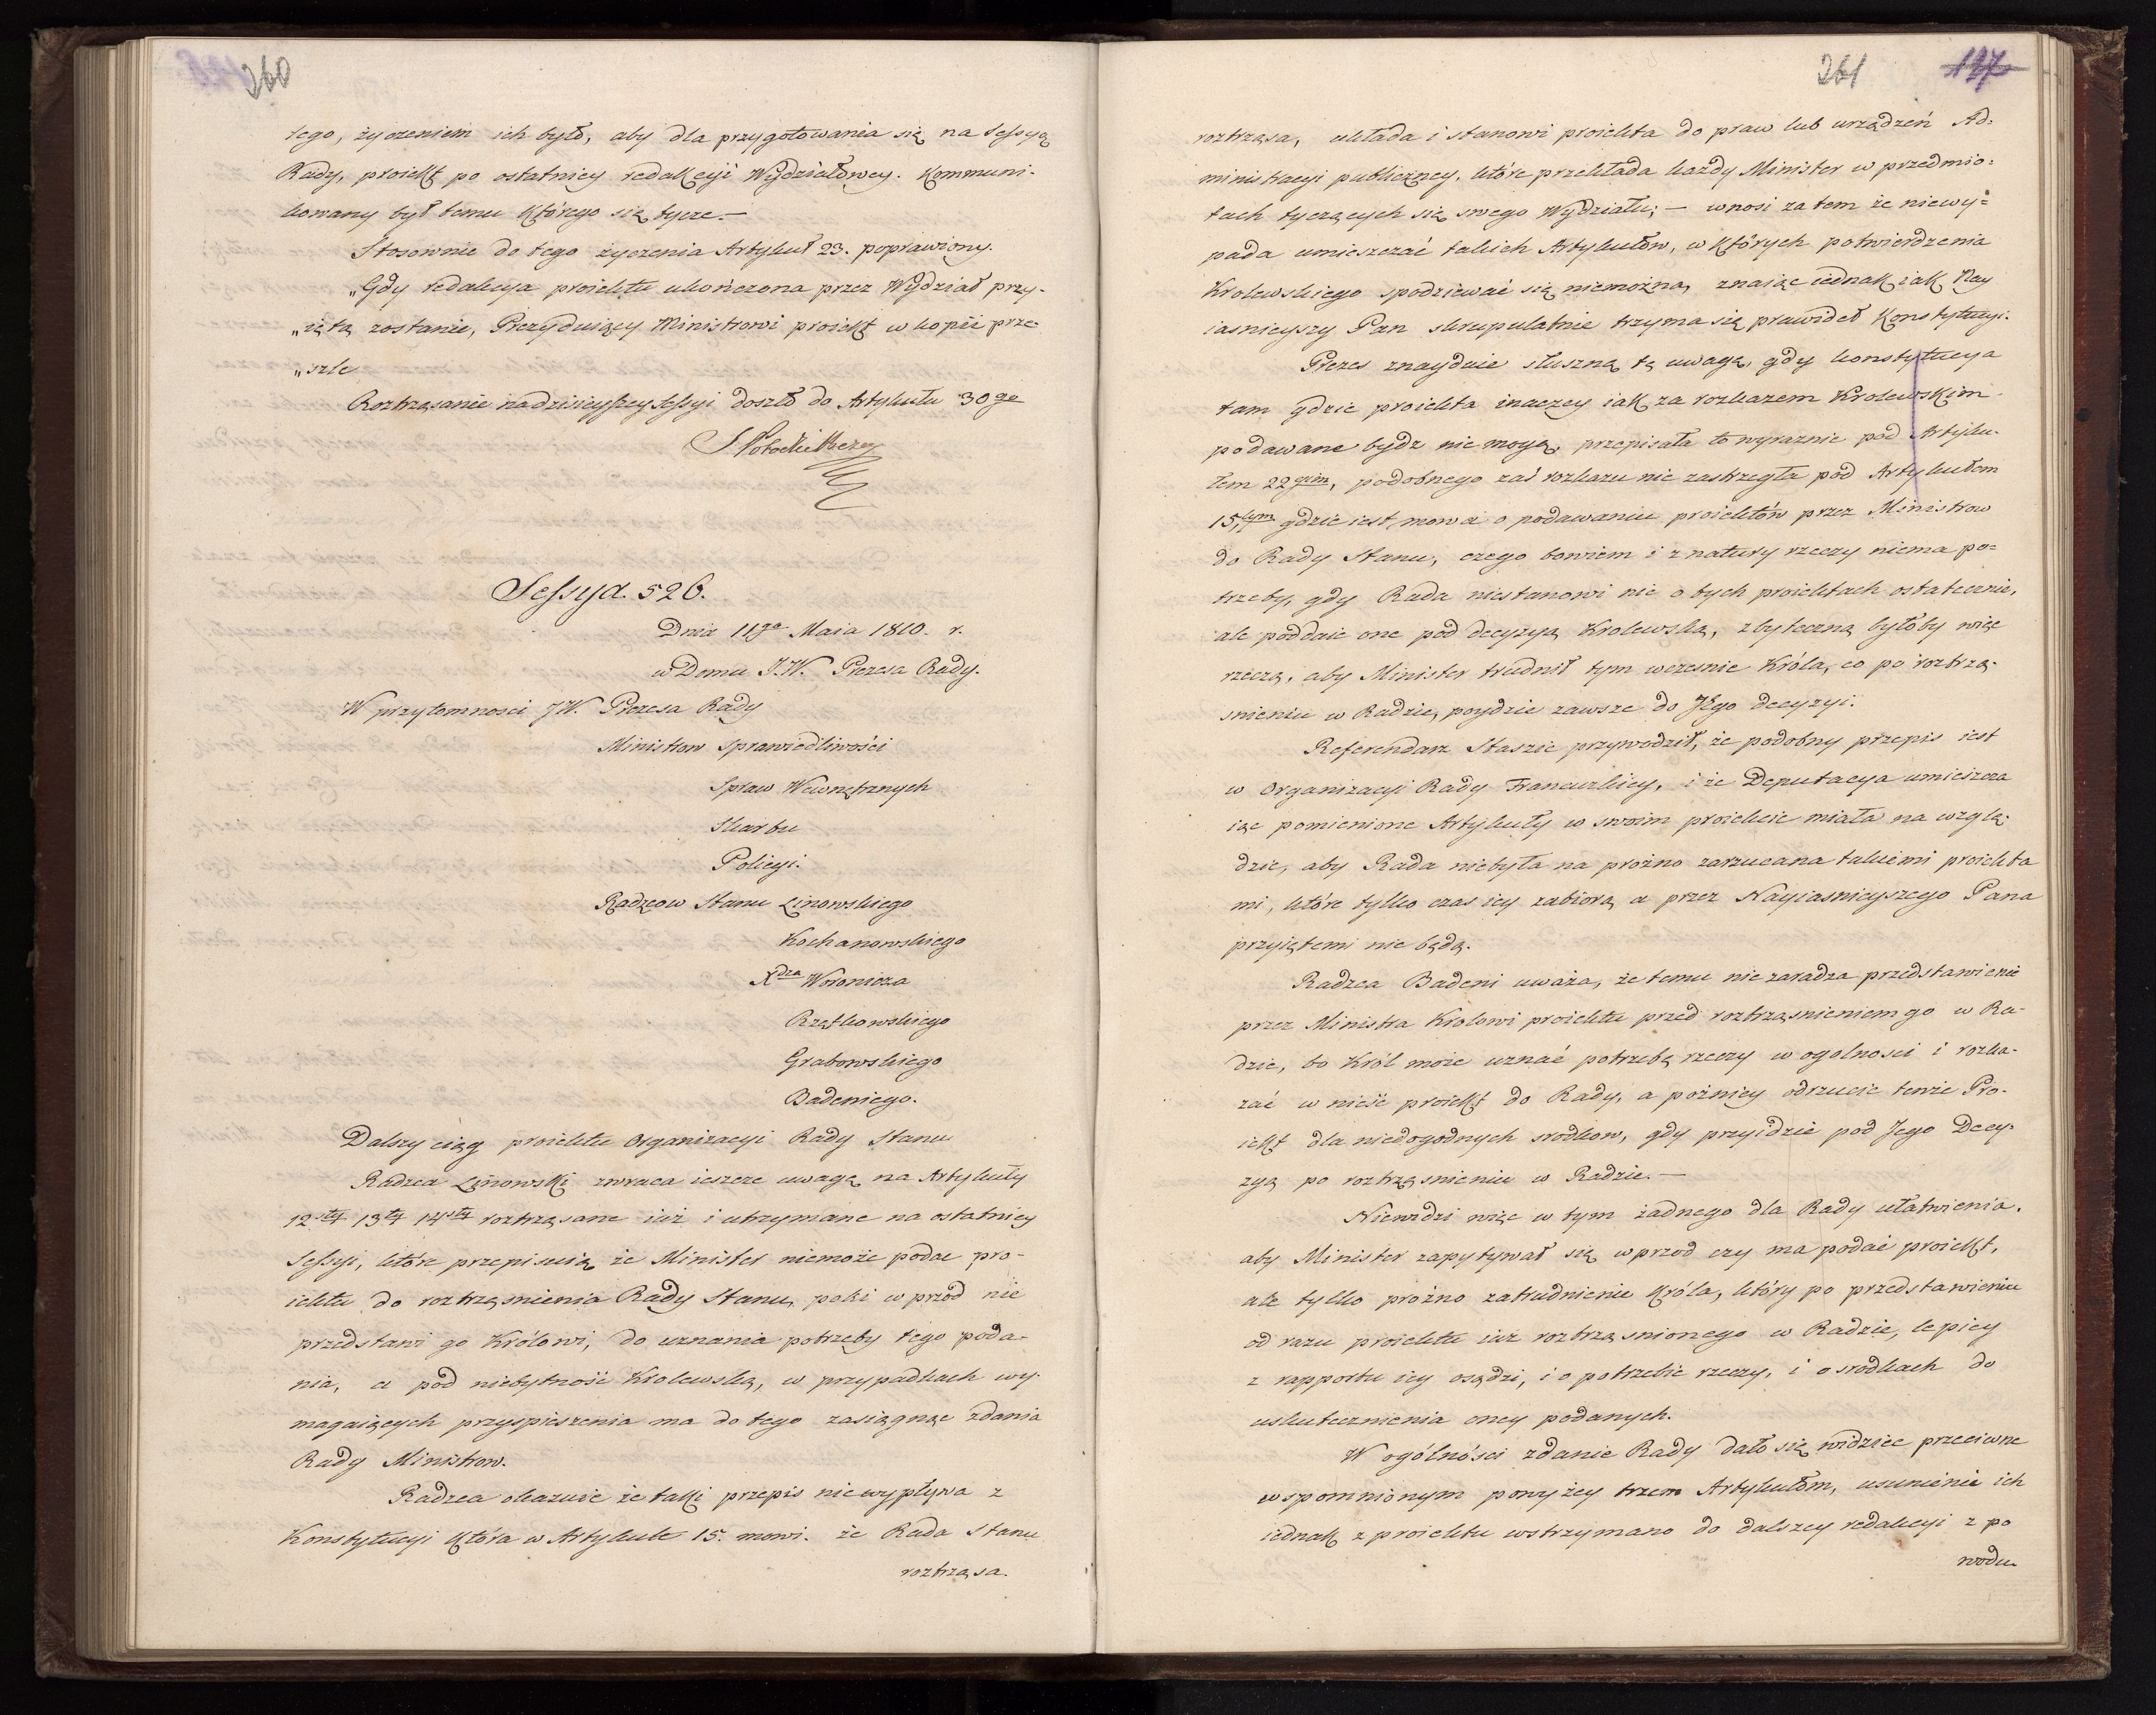 260
tego, życzeniem ich było, aby dla przygotowania się na Sessyą
Rady, proiekt po ostatniey redakcyi Wydziałowey. Kommuni-
kowany był temu którego się tycze.—
Stosownie do tego życzenia Artykuł 23. poprawiony.
„Gdy redakcya proiektu ukończona przez Wydział przy-
„iętą zostanie, Prezyduiący Ministrowi proiekt w kopii prze-
„szle
Roztrząsanie na dzisieyszey Sessyi doszło do Artykułu 30go
S. Potocki Prezes
Sessya. 526.
Dnia 11go Maia 1810. r.
w Domu J.W. Prezesa Rady.
W przytomnosci JW. Prezesa Rady
Ministrow Sprawiedliwości
Spraw Wewnętrznych
Skarbu
Policyi.
Radzcow Stanu Linowskiego
Kochanowskiego
Xdza Woronicza
Rzątkowskiego
Grabowskiego
Badeniego.
Dalszy ciąg proiektu Organizacyi Rady Stanu
Radzca Linowski zwraca ieszcze uwagę na Artykuły
12sty 13ty 14sty roztrząsane iuż i utrzymane na ostatniey
Sessyi, które przepisuią że Minister niemoże podac pro-
iektu do roztrząsnienia Rady Stanu, poki w przod nie
przedstawi go Królowi, do uznania potrzeby tego poda-
nia, a pod niebytność Krolewską, w przypadkach wy-
magaiących przyspieszenia ma do tego zasiągnąc zdania
Rady Ministrow.
Radzca okazuie że taki przepis nie wypływa z
Konstytucyi która w Artykule 15. mowi. że Rada Stanu
roztrząsa.
261 127
roztrząsa, układa i stanowi proiekta do praw lub urządzeń Ad-
ministracyi publiczney, które przekłada każdy Minister w przedmio-
tach tyczących się swego Wydziału; — wnosi zatem że niewy-
pada umieszczać takich Artykułow, w których potwierdzenia
Krolewskiego spodziewać się niemożna, znaiąc iednak iak Nay
iasnieyszy Pan skrupulatnie trzyma się prawideł Konstytucyi.
Prezes znayduie słuszną tę uwagę, gdy konstytucya
tam gdzie proiekta inaczey iak za rozkazem Krolewskim
podawane bydz nie mogą, przepisała to wyraznie pod Artyku-
łem 22gim, podobnego zaś rozkazu nie zastrzegła pod Artykułem
15tym gdzie iest mowa o podawaniu proiektów przez Ministrow
do Rady Stanu, czego bowiem i z natury rzeczy niema po-
trzeby, gdy Rada niestanowi nic o tych proiektach ostatecznie,
ale poddaie one pod decyzyą Krolewską, zbyteczną byłoby więc
rzeczą, aby Minister trudnił tym wczesnie Króla, co po roztrzą-
snieniu w Radzie, poydzie zawsze do Jego decyzyi.
Referendarz Staszic przywodził, że podobny przepis iest
w Organizacyi Rady Francuzkiey, i że Deputacya umieszcza
iąc pomienione Artykuły w swoim proiekcie miała na wzglę-
dzie, aby Rada niebyła na prożno zarzucana takiemi proiekta
mi, które tylko czas iey zabiorą a przez Nayiasnieyszego Pana
przyiętemi nie będą.
Radzca Badeni uważa, że temu nie zaradza przedstawienie
przez Ministra Krolowi proiektu przed roztrząsnieniem go w Ra-
dzie, bo Król może uznać potrzebę rzeczy w ogolnosci i rozka-
zać wnieść proiekt do Rady, a pożniey odrzucic tenże Pro-
iekt dla niedogodnych srodkow, gdy przyidzie pod Jego Decy-
zyą po roztrząsnieniu w Radzie.—
Niewidzi więc w tym żadnego dla Rady ułatwienia,
aby Minister zapytywał się wprzod czy ma podać proiekt,
ale tylko prożno zatrudnienie Króla, który po przedstawieniu
od razu proiektu iuż roztrząsnionego w Radzie, lepiey
z rapportu iey osądzi, i o potrzebie rzeczy, i o srodkach do
uskutecznienia oney podanych.
W ogólności zdanie Rady dało się widziec przeciwne
wspomnionym powyżey trzem Artykułom, usunienie ich
iednak z proiektu wstrzymano do dalszey redakcyi z po
wodu